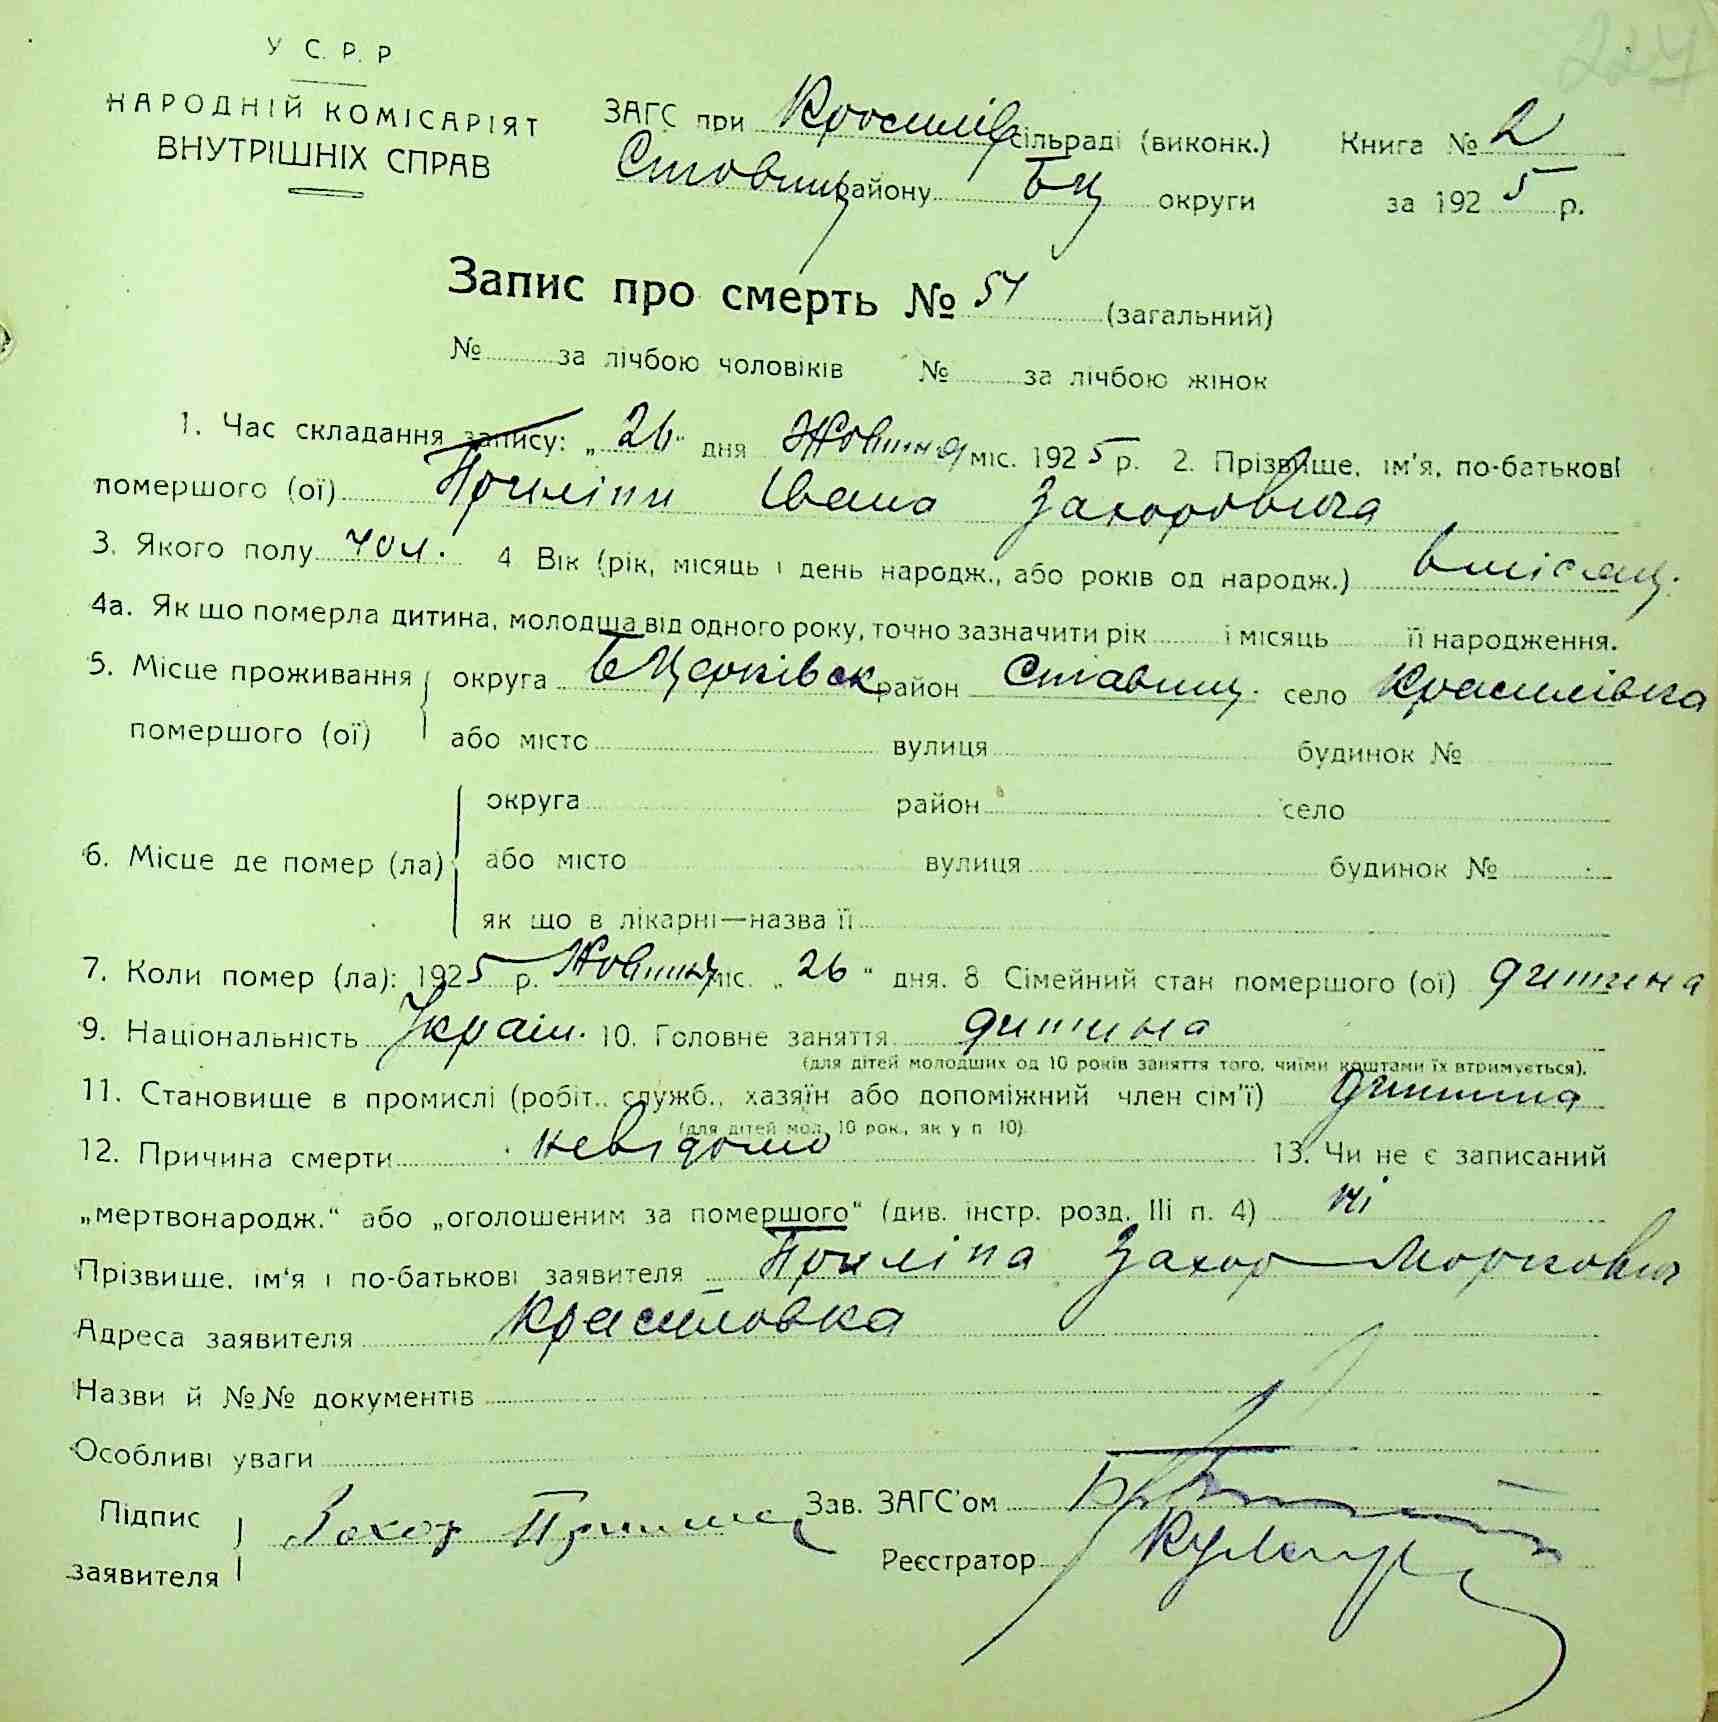 227
У С. Р. Р
НАРОДНІЙ КОМІСАРІЯТ
ВНУТРІШНІХ СПРАВ
ЗАГС при Красилів сільраді (виконк.) Книга № 2
Ставищ району БЦ округи за 1925 р.
Запис про смерть № 54 (загальний)
№ за лічбою чоловіків № за лічбою жінок
1. Час складання запису: „26“ дня Жовтня міс. 1925 р. 2. Прізвище, ім'я, по-батькові
помершого (ої) Приліпи Івана Захаровича
3. Якого полу чол. 4 Вік (рік, місяць і день народж., або років од народж.) 6 місяц.
4а. Як що померла дитина, молодша від одного року, точно зазначити рік і місяць її народження.
5. Місце проживання округа БЦерківськ район Ставищ. село Красилівка
помершого (ої) або місто вулиця будинок №
округа район село
6. Місце де помер (ла) або місто вулиця будинок №
як що в лікарні—назва її
7. Коли помер (ла): 1925 р. Жовтня міс. „26“ дня. 8 Сімейний стан помершого (ої) дитина
9. Національність Україн. 10. Головне заняття дитина
(для дітей молодших од 10 років заняття того, чиїми коштами їх втримується).
11. Становище в промислі (робіт., служб., хазяїн або допоміжний член сім'ї) дитина
(для дітей мол. 10 рок., як у п 10).
12. Причина смерти невідомо 13. Чи не є записаний
„мертвонародж.“ або „оголошеним за помершого“ (див. інстр. розд. III п. 4) ні
Прізвище, ім'я і по-батькові заявителя Приліпа Захар Маркович
Адреса заявителя Красиловка
Назви й №№ документів
Особливі уваги
Підпис заявителя Захар Зав. ЗАГС'ом
Реєстратор